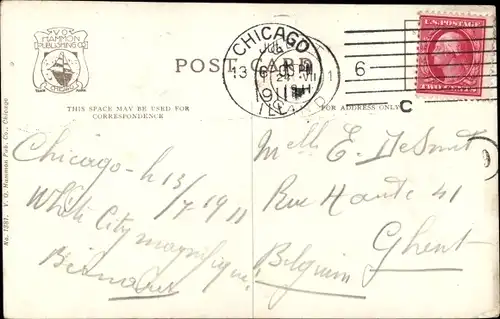 V.O.
HAMMON
PUBLISHING CO.
CHICAGO
JUL
13 6 00 PM
1911
ILL.
6
C
U.S. POSTAGE
POST CARD
THIS SPACE MAY BE USED FOR
CORRESPONDENCE
FOR ADDRESS ONLY
No. 1281. V. O. Hammon Pub. Co., Chicago
Chicago - h 13/7 1911
White City magnifique.
Bernard
Melle E. DeSmet
Rue Haute 41
Ghent
Belgium